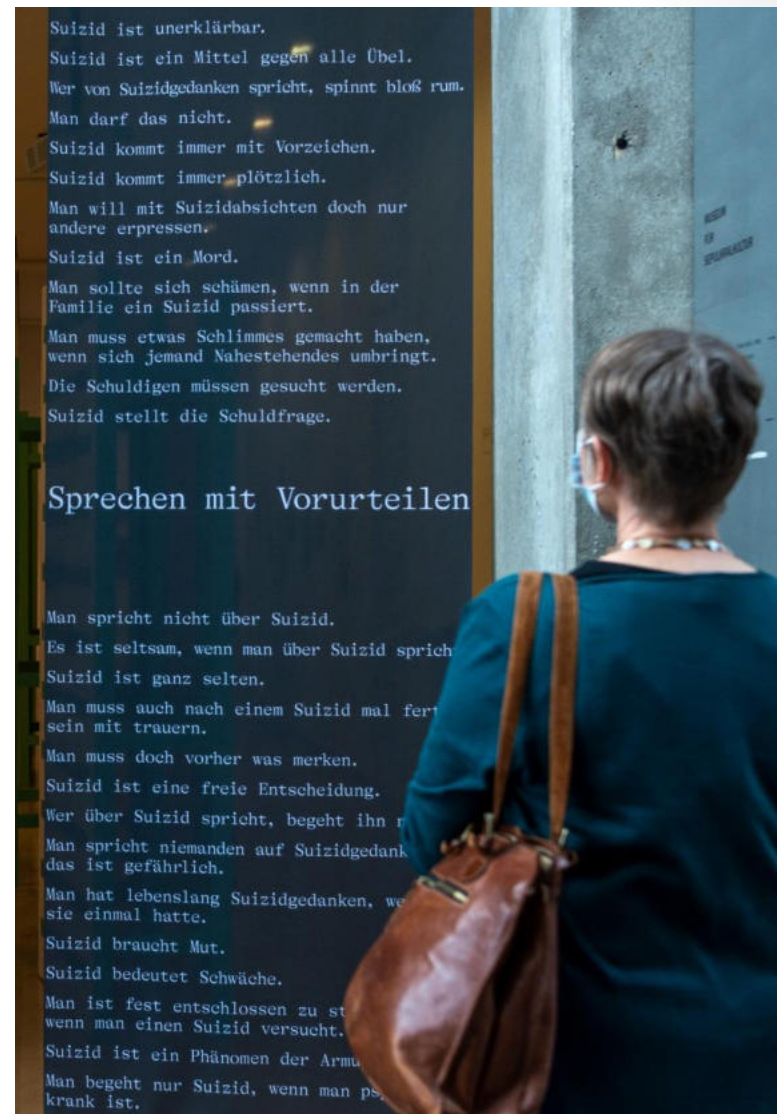 Suizid ist unerklärbar.
Suizid ist ein Mittel gegen alle Übel.
Wer von Suizidgedanken spricht, spinnt bloß rum.
Man darf das nicht.
Suizid kommt immer mit Vorzeichen.
Suizid kommt immer plötzlich.
Man will mit Suizidabsichten doch nur
andere erpressen.
Suizid ist ein Mord.
Man sollte sich schämen, wenn in der
Familie ein Suizid passiert.
Man muss etwas Schlimmes gemacht haben,
wenn sich jemand Nahestehendes umbringt.
Die Schuldigen müssen gesucht werden.
Suizid stellt die Schuldfrage.
Sprechen mit Vorurteilen
Man spricht nicht über Suizid.
Es ist seltsam, wenn man über Suizid sprich
Suizid ist ganz selten.
Man muss auch nach einem Suizid mal fert
sein mit trauern.
Man muss doch vorher was merken.
Suizid ist eine freie Entscheidung.
Wer über Suizid spricht, begeht ihn
Man spricht niemanden auf Suizidgedank
das ist gefährlich.
Man hat lebenslang Suizidgedanken, we
sie einmal hatte.
Suizid braucht Mut.
Suizid bedeutet Schwäche.
Man ist fest entschlossen zu st
wenn man einen Suizid versucht.
Suizid ist ein Phänomen der Armu
Man begeht nur Suizid, wenn man ps
krank ist.
MUSEUM
FÜR
SEPULKRALKULTUR